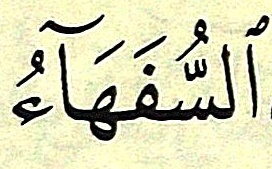 ٱلسُّفَهَآءُ